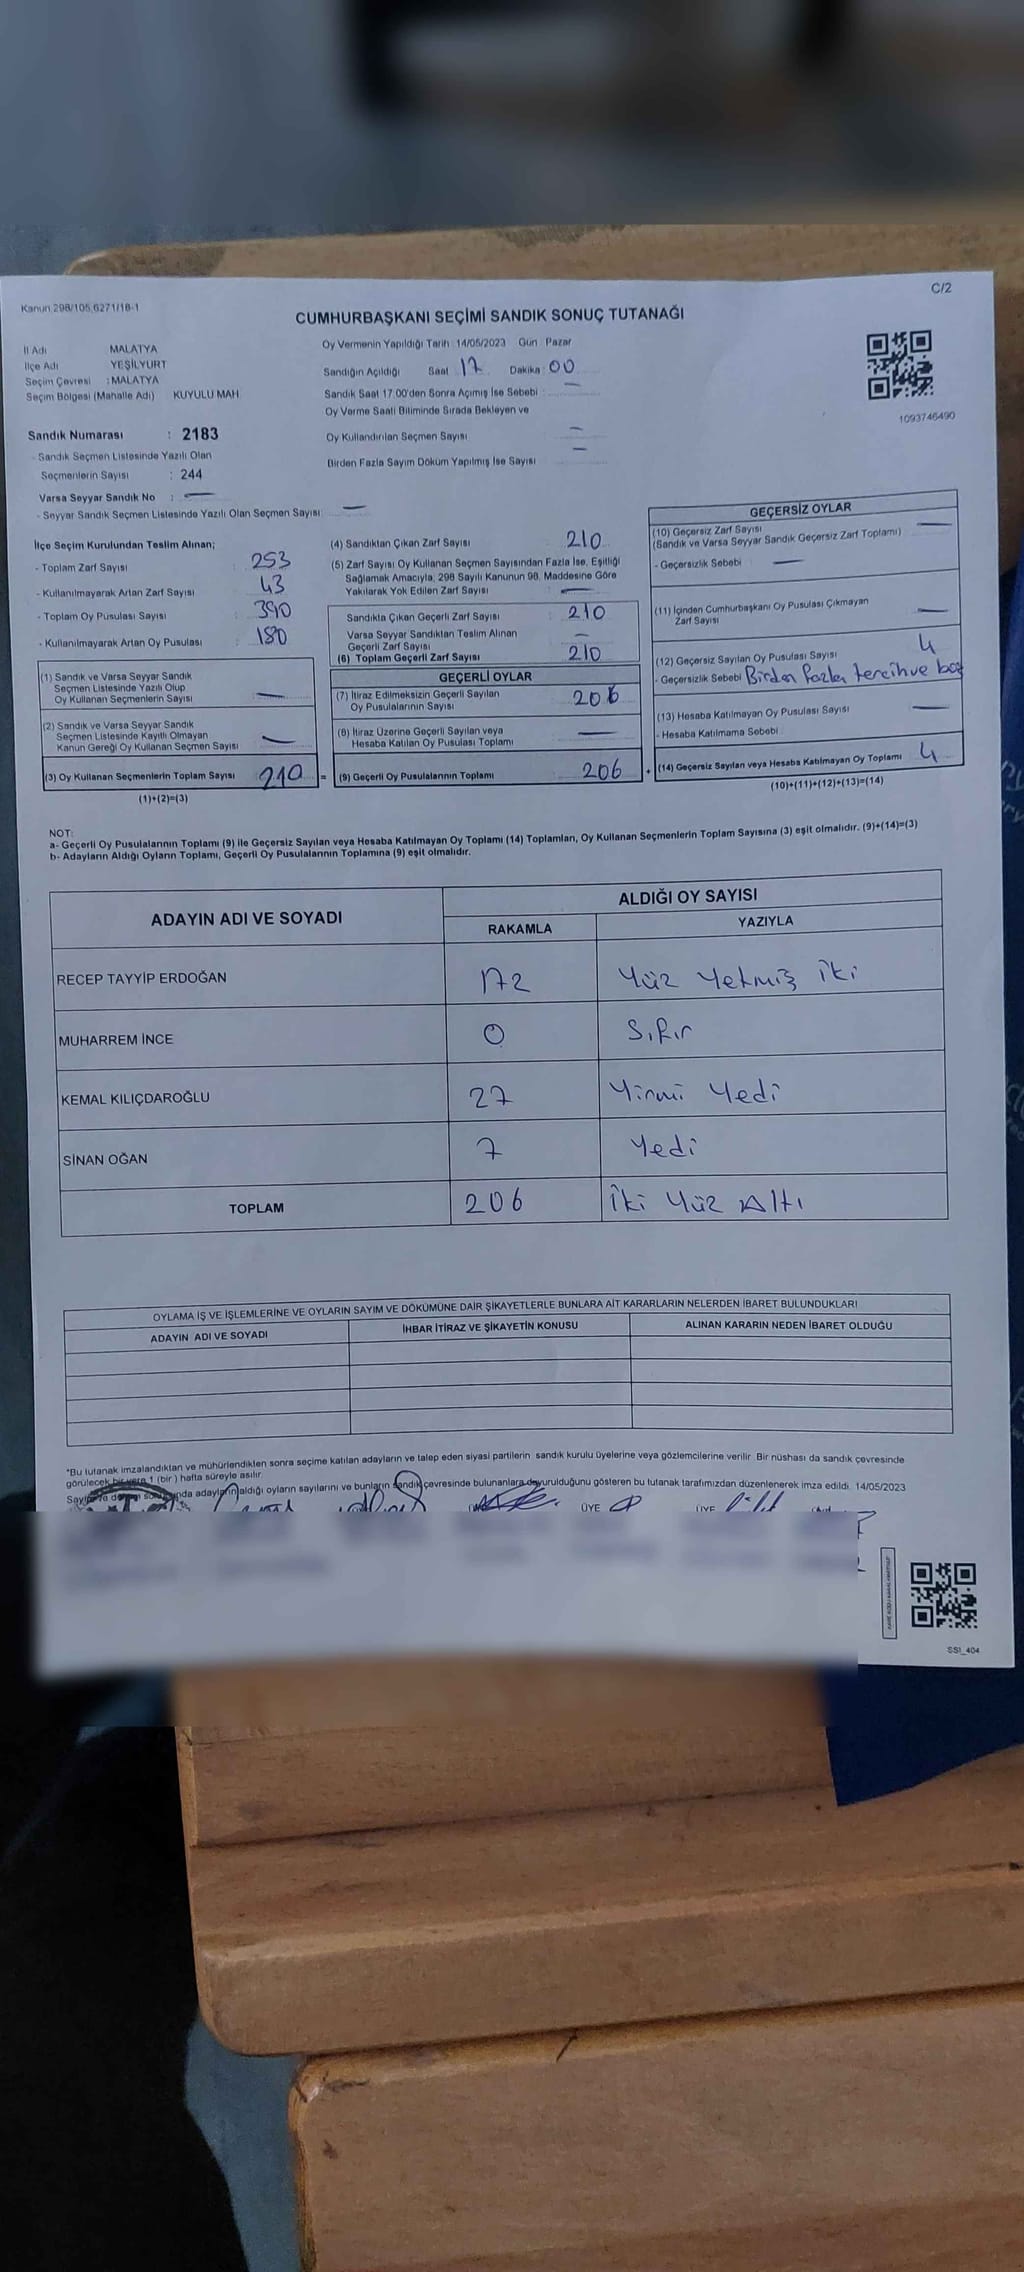 C/2
Kanun:298/105,6271/18-1
CUMHURBAŞKANI SEÇİMİ SANDIK SONUÇ TUTANAĞI
İl Adı MALATYA
İlçe Adı YEŞİLYURT
Seçim Çevresi : MALATYA
Seçim Bölgesi (Mahalle Adı) KUYULU MAH
Sandık Numarası : 2183
- Sandık Seçmen Listesinde Yazılı Olan
Seçmenlerin Sayısı : 244
Varsa Seyyar Sandık No : —
- Seyyar Sandık Seçmen Listesinde Yazılı Olan Seçmen Sayısı: —
Oy Vermenin Yapıldığı Tarih 14/05/2023 Gün Pazar
Sandığın Açıldığı Saat 17 Dakika : 00
Sandık Saat 17.00'den Sonra Açımış İse Sebebi : —
Oy Verme Saati Bitiminde Sırada Bekleyen ve
Oy Kullandırılan Seçmen Sayısı —
Birden Fazla Sayım Döküm Yapılmış İse Sayısı —
1093746490
İlçe Seçim Kurulundan Teslim Alınan;
- Toplam Zarf Sayısı : 253
- Kullanılmayarak Artan Zarf Sayısı : 43
- Toplam Oy Pusulası Sayısı : 390
- Kullanılmayarak Artan Oy Pusulası : 180
(1) Sandık ve Varsa Seyyar Sandık
Seçmen Listesinde Yazılı Olup
Oy Kullanan Seçmenlerin Sayısı —
(2) Sandık ve Varsa Seyyar Sandık
Seçmen Listesinde Kayıtlı Olmayan
Kanun Gereği Oy Kullanan Seçmen Sayısı —
(3) Oy Kullanan Seçmenlerin Toplam Sayısı 210 =
(1)+(2)=(3)
(4) Sandıktan Çıkan Zarf Sayısı 210
(5) Zarf Sayısı Oy Kullanan Seçmen Sayısından Fazla İse, Eşitliği
Sağlamak Amacıyla, 298 Sayılı Kanunun 98. Maddesine Göre
Yakılarak Yok Edilen Zarf Sayısı —
Sandıkta Çıkan Geçerli Zarf Sayısı : 210
Varsa Seyyar Sandıktan Teslim Alınan
Geçerli Zarf Sayısı —
(6) Toplam Geçerli Zarf Sayısı 210
GEÇERLİ OYLAR
(7) İtiraz Edilmeksizin Geçerli Sayılan
Oy Pusulalarının Sayısı 206
(8) İtiraz Üzerine Geçerli Sayılan veya
Hesaba Katılan Oy Pusulası Toplamı —
(9) Geçerli Oy Pusulalarının Toplamı 206 +
GEÇERSİZ OYLAR
(10) Geçersiz Zarf Sayısı —
(Sandık ve Varsa Seyyar Sandık Geçersiz Zarf Toplamı)
- Geçersizlik Sebebi —
(11) İçinden Cumhurbaşkanı Oy Pusulası Çıkmayan
Zarf Sayısı —
(12) Geçersiz Sayılan Oy Pusulası Sayısı 4
- Geçersizlik Sebebi Birden fazla tercih ve boş
(13) Hesaba Katılmayan Oy Pusulası Sayısı —
- Hesaba Katılmama Sebebi
(14) Geçersiz Sayılan veya Hesaba Katılmayan Oy Toplamı 4
(10)+(11)+(12)+(13)=(14)
NOT:
a- Geçerli Oy Pusulalarının Toplamı (9) ile Geçersiz Sayılan veya Hesaba Katılmayan Oy Toplamı (14) Toplamları, Oy Kullanan Seçmenlerin Toplam Sayısına (3) eşit olmalıdır. (9)+(14)=(3)
b- Adayların Aldığı Oyların Toplamı, Geçerli Oy Pusulalarının Toplamına (9) eşit olmalıdır.
ADAYIN ADI VE SOYADI ALDIĞI OY SAYISI
RAKAMLA YAZIYLA
RECEP TAYYİP ERDOĞAN 172 Yüz Yetmiş İki
MUHARREM İNCE 0 Sıfır
KEMAL KILIÇDAROĞLU 27 Yirmi Yedi
SİNAN OĞAN 7 Yedi
TOPLAM 206 İki Yüz Altı
OYLAMA İŞ VE İŞLEMLERİNE VE OYLARIN SAYIM VE DÖKÜMÜNE DAİR ŞİKAYETLERLE BUNLARA AİT KARARLARIN NELERDEN İBARET BULUNDUKLARI
ADAYIN ADI VE SOYADI İHBAR İTİRAZ VE ŞİKAYETİN KONUSU ALINAN KARARIN NEDEN İBARET OLDUĞU
*Bu tutanak imzalandıktan ve mühürlendikten sonra seçime katılan adayların ve talep eden siyasi partilerin sandık kurulu üyelerine veya gözlemcilerine verilir. Bir nüshası da sandık çevresinde
görülecek bir yere 1 (bir) hafta süreyle asılır.
Sayım ve döküm sonunda adayların aldığı oyların sayılarını ve bunların sandık çevresinde bulunanlara duyurulduğunu gösteren bu tutanak tarafımızdan düzenlenerek imza edildi. 14/05/2023
ÜYE ÜYE
SSI_404